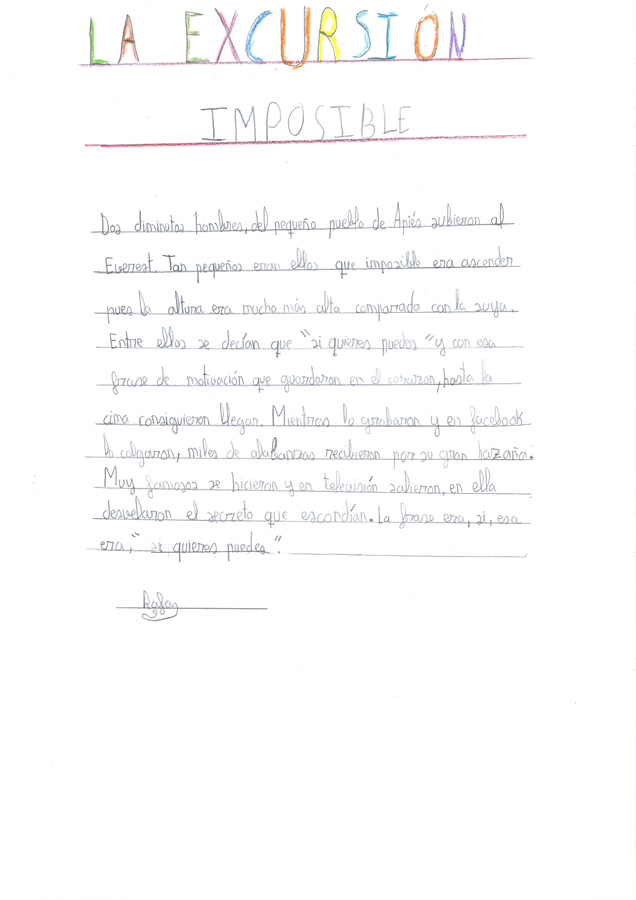 LA EXCURSIÓN
IMPOSIBLE
Dos diminutos hombres, del pequeño pueblo de Apiés subieron al
Everest. Tan pequeños eran ellos que imposible era ascender
pues la altura era mucho más alta comparrada con la suya.
Entre ellos se decían que "si quieres puedes" y con esa
frase de motivación que guardaron en el corazon, hasta la
cima consiguieron llegar. Mientras lo grabaron y en facebook
lo colgaron, miles de alabanzas recibieron por su gran hazaña.
Muy famosos se hicieron y en televisión salieron, en ella
desvelaron el secreto que escondían. La frase era, si, esa
era, "si quieres puedes".